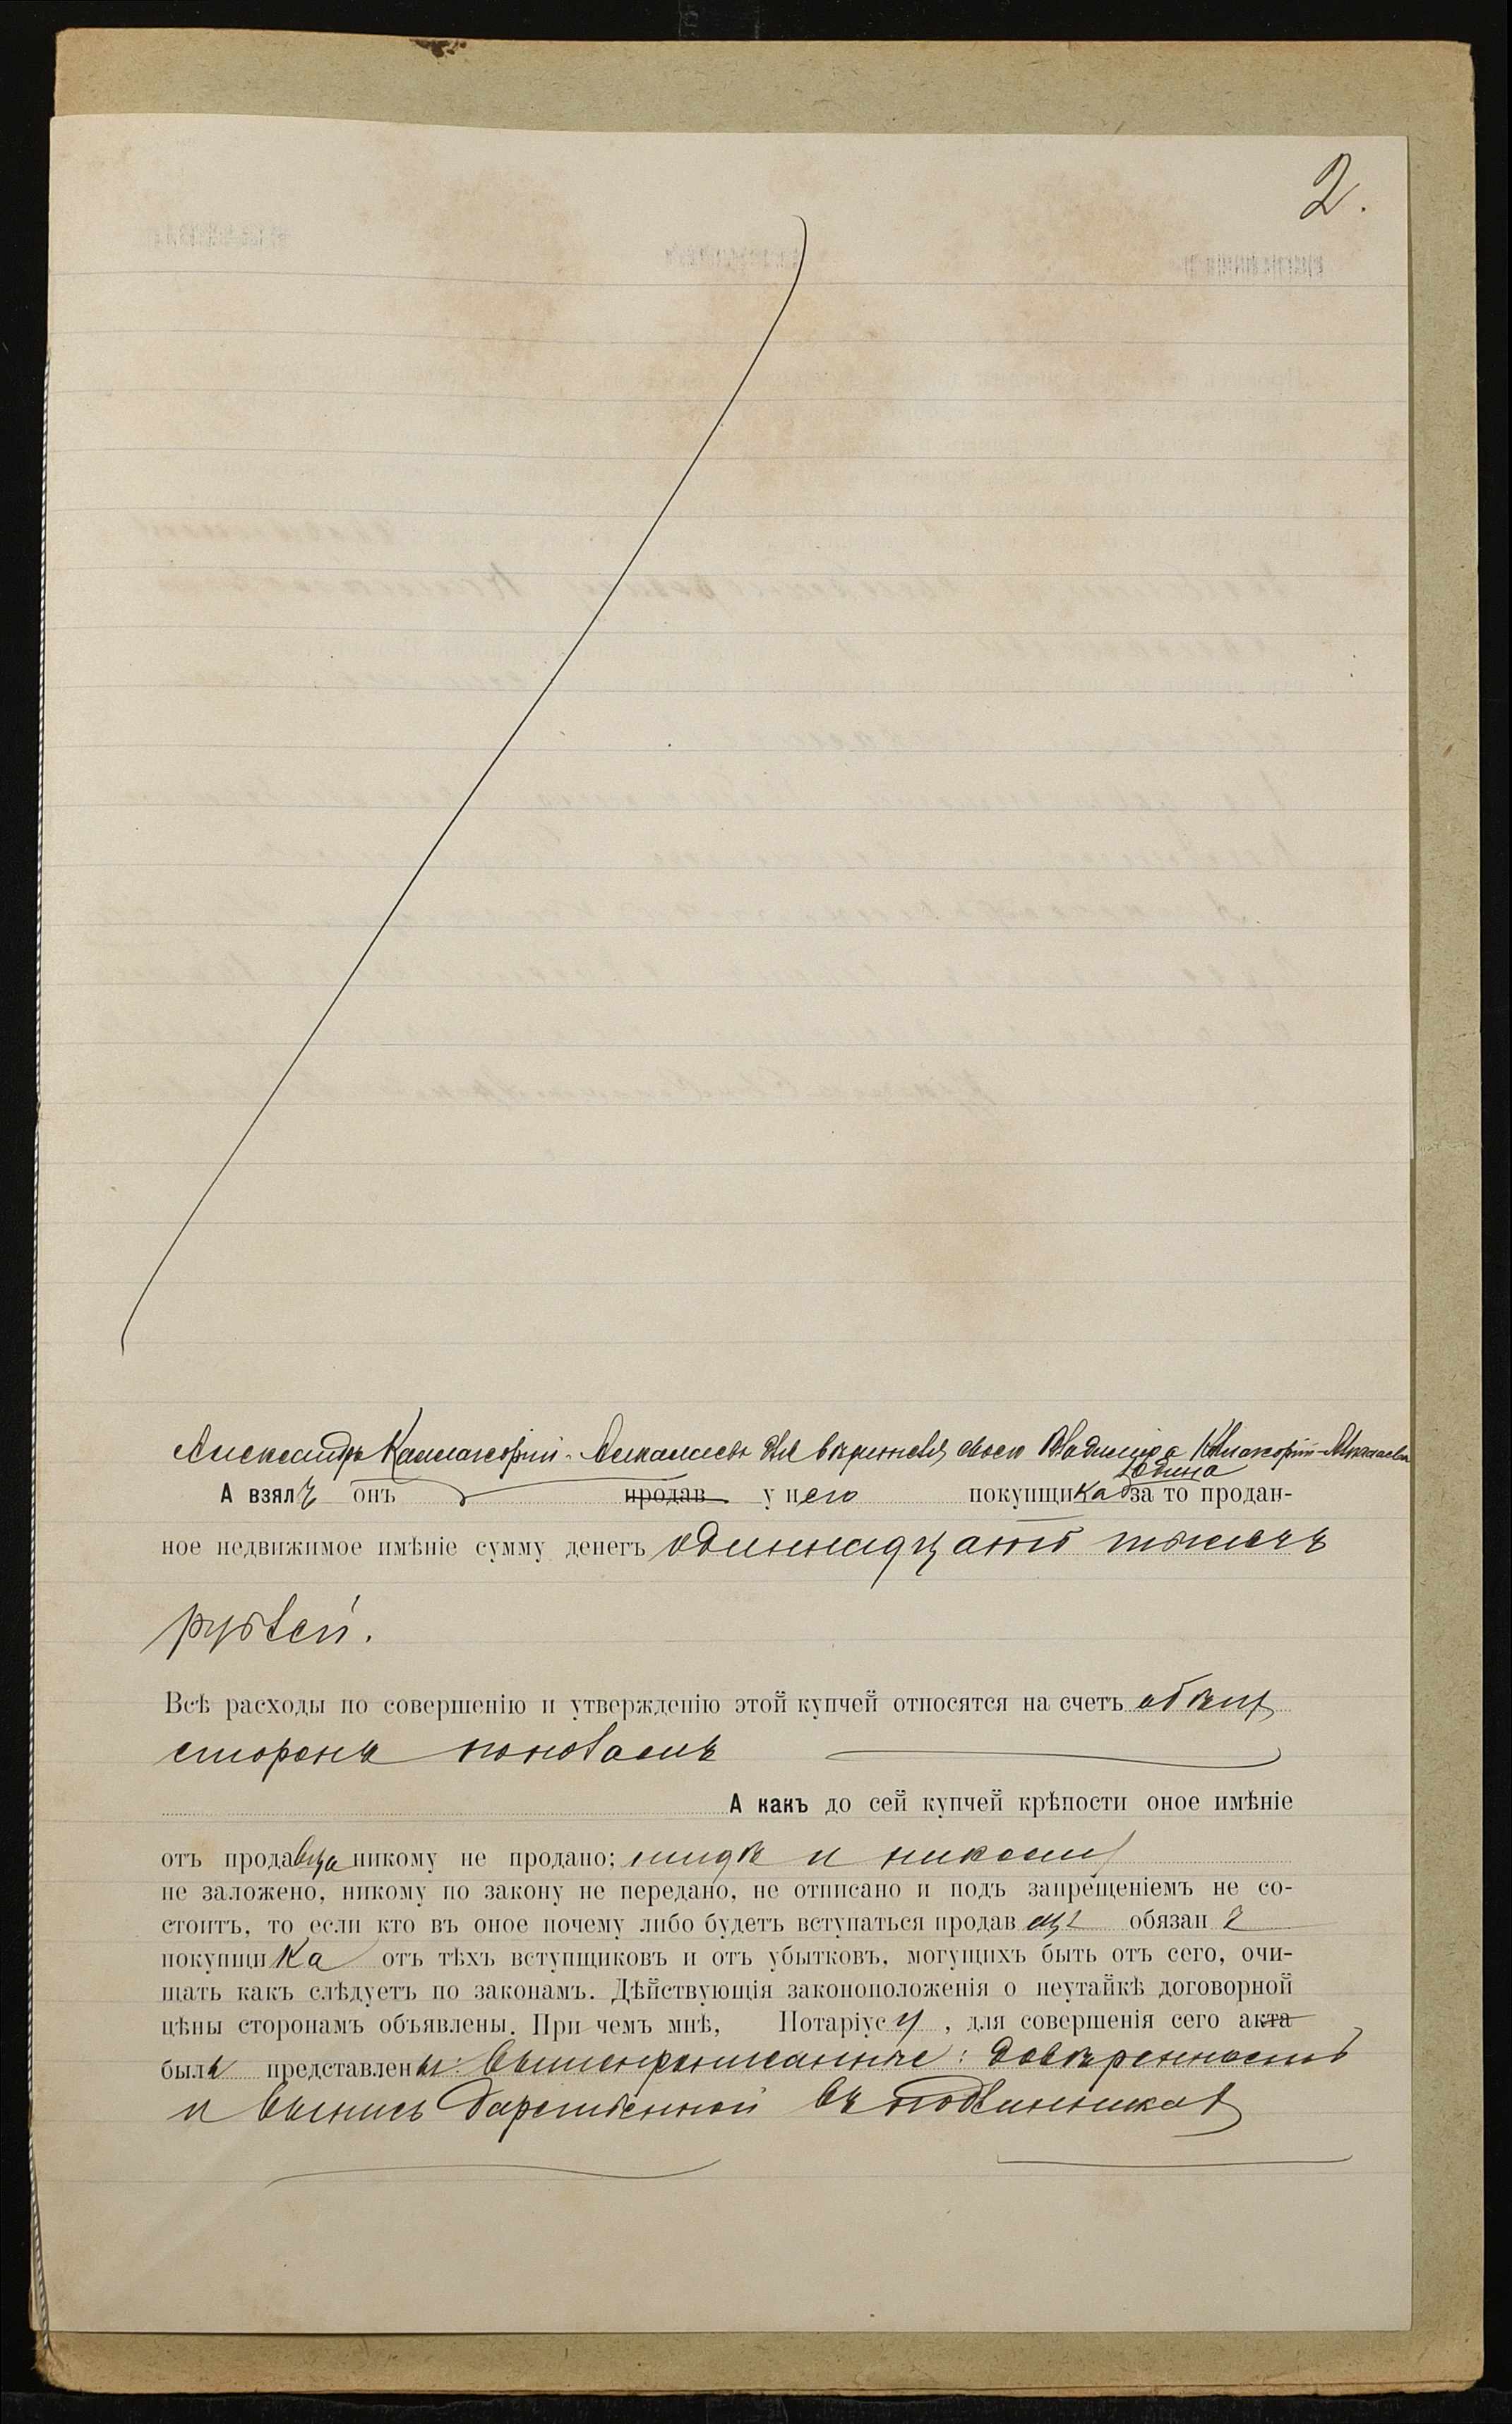 2.
Александръ Калмакорій-Аскалаевъ для вѣрителя своего Владиміра
Юдина
А взялъ онъ продав у него покупщика за то продан-
ное недвижимое имѣніе сумму денегъ одиннадцать тысячъ
рублей.
Всѣ расходы по совершенію и утвержденію этой купчей относятся на счетъ обѣихъ
сторонъ пополамъ
А какъ до сей купчей крѣпости оное имѣніе
отъ продавца никому не продано; нигдѣ и никому
не заложено, никому по закону не передано, не отписано и подъ запрещеніемъ не со-
стоитъ, то если кто въ оное почему либо будетъ вступаться продавецъ обязанъ
покупщика отъ тѣхъ вступщиковъ и отъ убытковъ, могущихъ быть отъ сего, очи-
щать какъ слѣдуетъ по законамъ. Дѣйствующія законоположенія о неутайкѣ договорной
цѣны сторонамъ объявлены. При чемъ мнѣ, Нотаріусу, для совершенія сего акта
были представлены: вышепрописанные: довѣренность
и выпись дарственной въ подлинникахъ